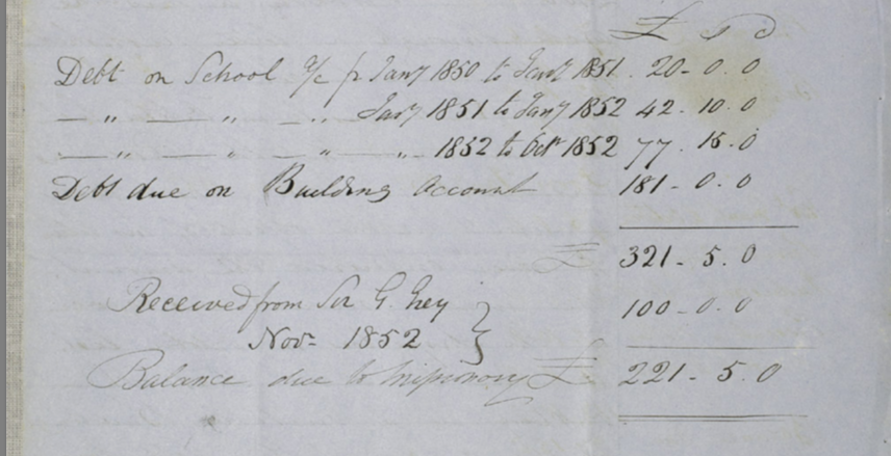 £ s d
Debt on School a/c pr Jany 1850 to Jany 1851. 20 - 0. 0
— " — " — " Jany 1851 to Jany 1852 42. 10. 0
— " — " — " — " 1852 to Octr 1852 77. 15. 0
Debt due on Building Account 181 - 0. 0
£ 321 - 5. 0
Received from Sir G. Grey } 100 - 0. 0
Novr 1852
Balance due to Missionary £ 221 - 5. 0